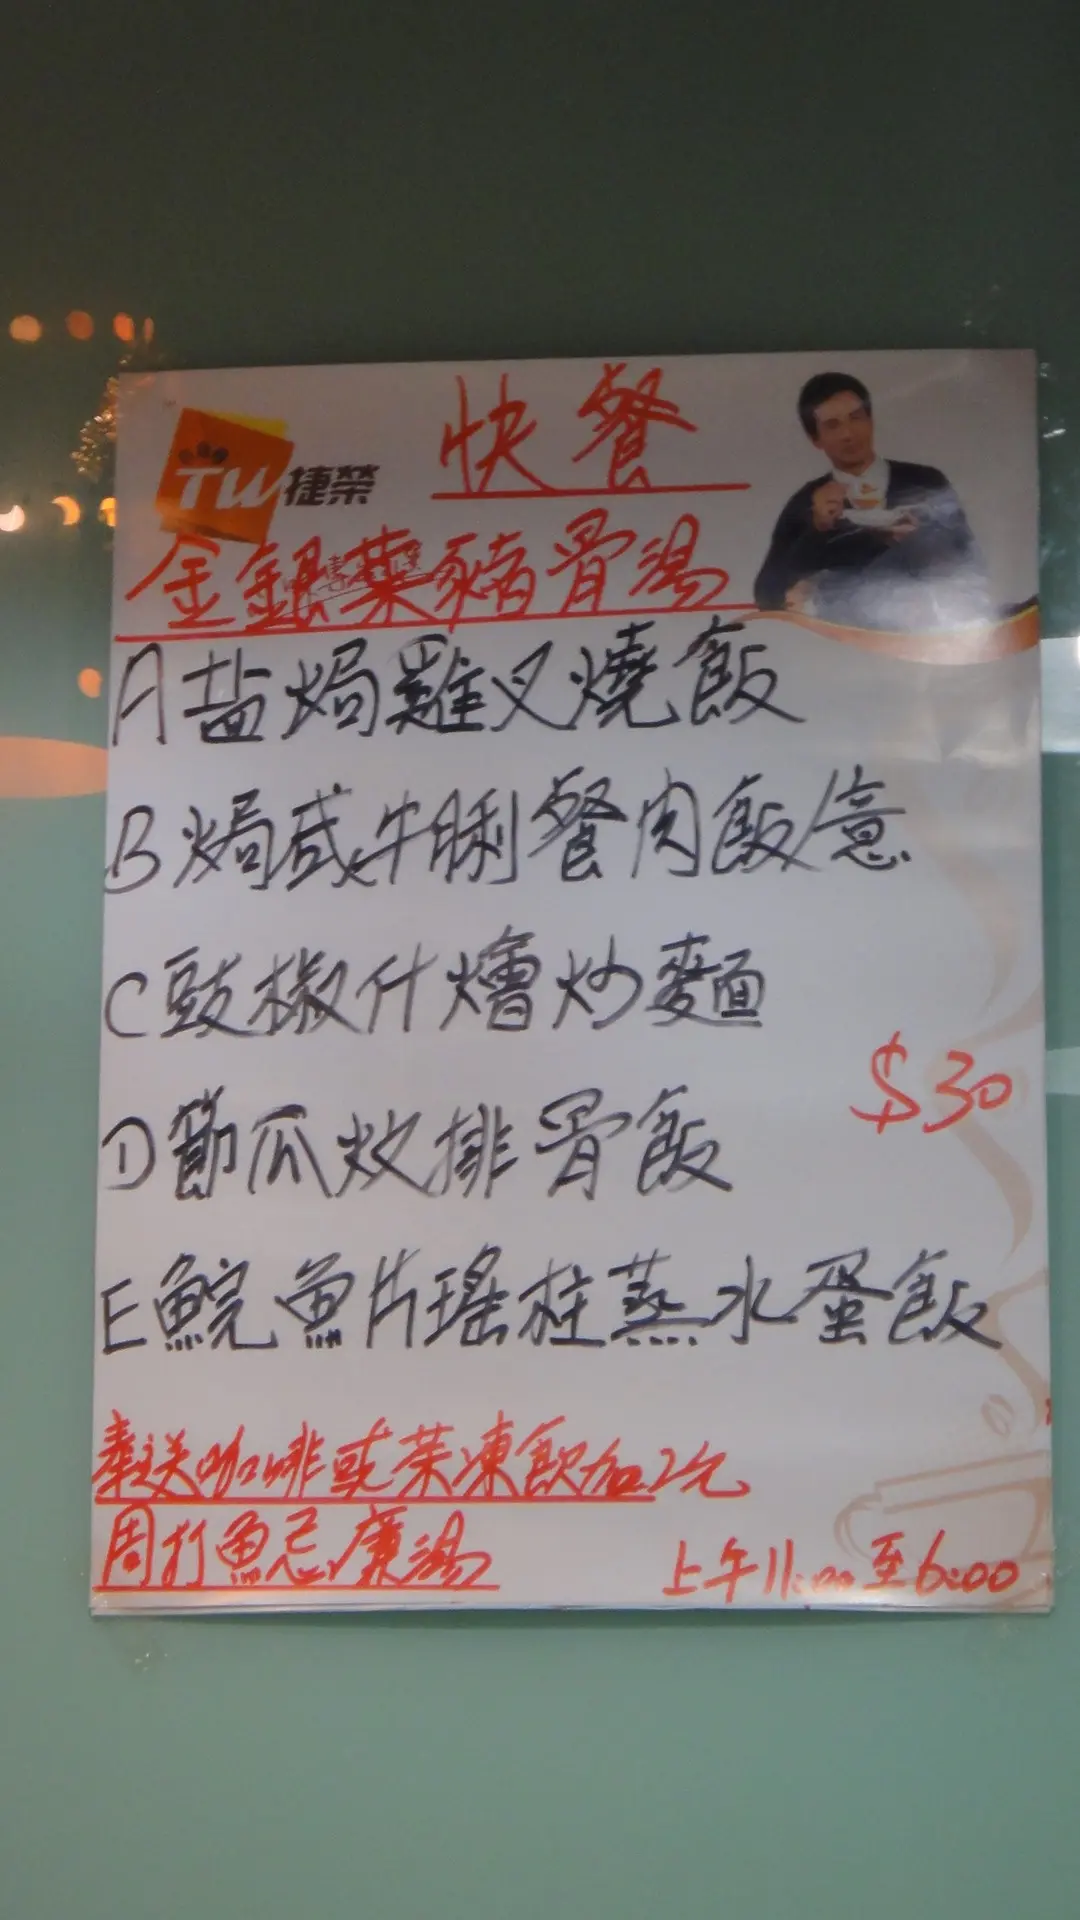 快餐
TW 捷榮
金銀菜豬骨湯
A 盐焗雞叉燒飯
B 焗咸牛脷餐肉飯/意
C 豉椒什燴炒麵
D 節瓜炆排骨飯
E 鯇魚片瑤柱蒸水蛋飯
$30
奉送咖啡或茶凍飲加2元
周打魚忌廉湯
上午11:00至6:00